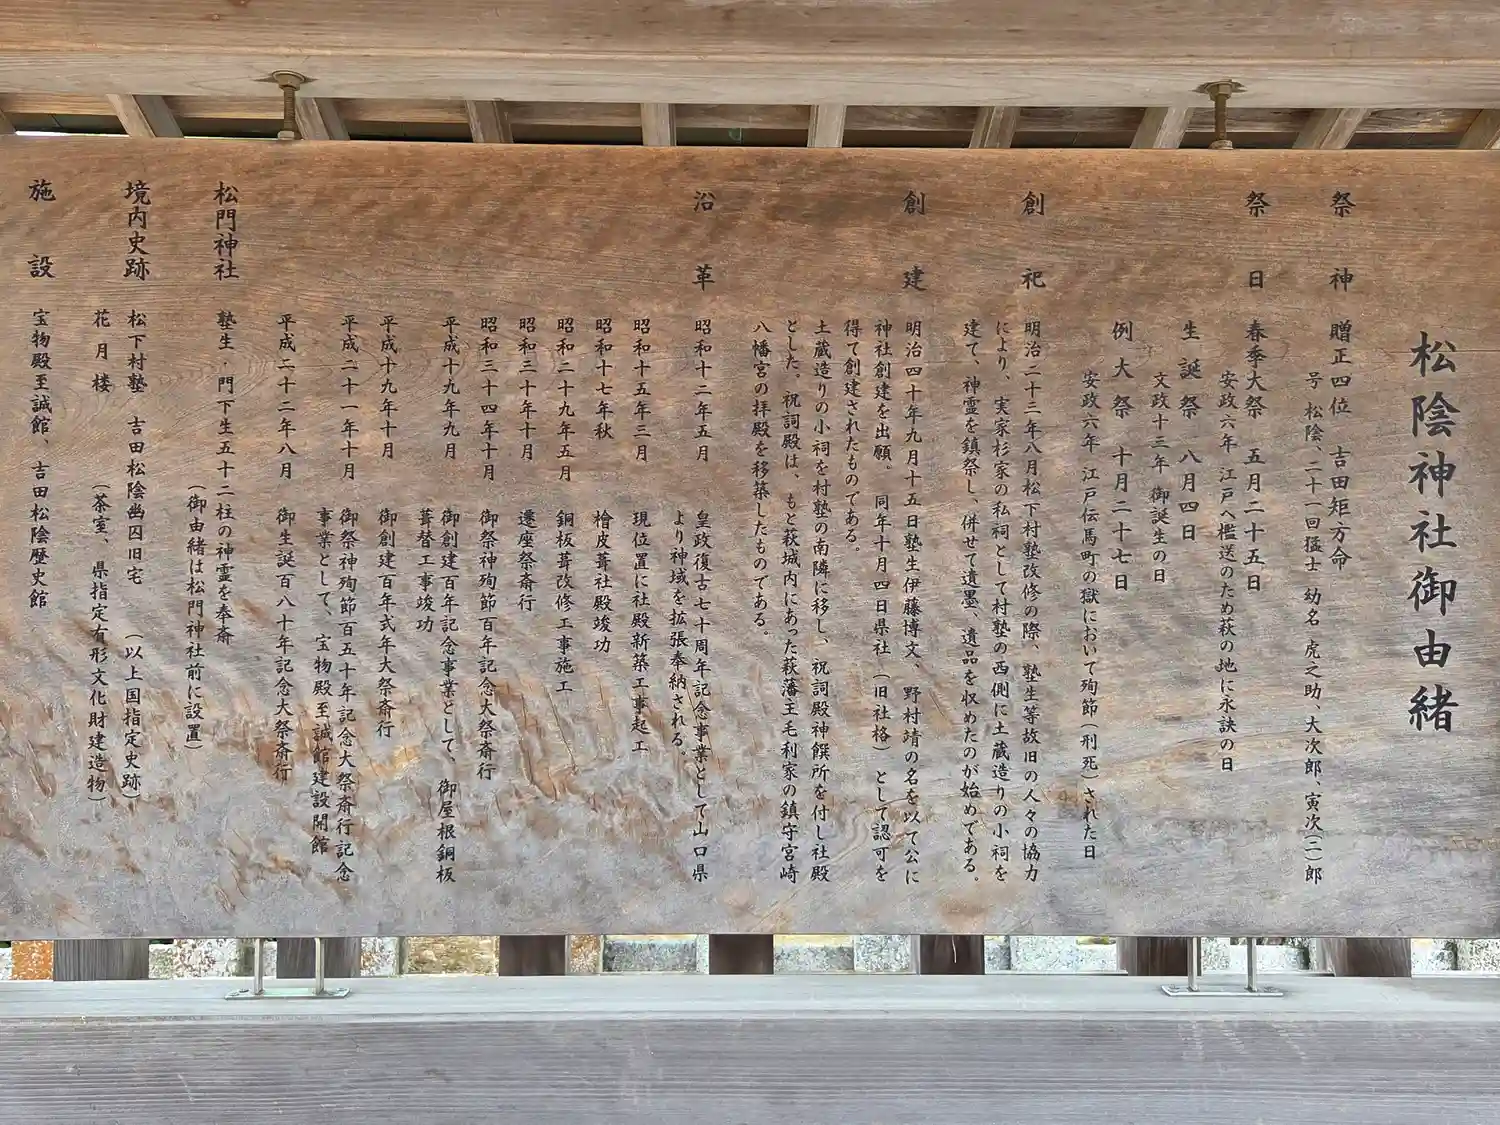 松陰神社御由緒
祭神 贈正四位 吉田矩方命
号 松陰、二十一回猛士 幼名 虎之助、大次郎、寅次(二)郎
祭日 春季大祭 五月二十五日
安政六年 江戸へ檻送のため萩の地に永訣の日
生誕祭 八月四日
文政十三年 御誕生の日
例大祭 十月二十七日
安政六年 江戸伝馬町の獄において殉節(刑死)された日
創祀 明治二十三年八月松下村塾改修の際、塾生等故旧の人々の協力
により、実家杉家の私祠として村塾の西側に土蔵造りの小祠を
建て、神霊を鎮祭し、併せて遺墨、遺品を収めたのが始めである。
創建 明治四十年九月十五日塾生伊藤博文、野村靖の名を以て公に
神社創建を出願。同年十月四日県社(旧社格)として認可を
得て創建されたものである。
土蔵造りの小祠を村塾の南隣に移し、祝詞殿神饌所を付し社殿
とした。祝詞殿は、もと萩城内にあった萩藩主毛利家の鎮守宮崎
八幡宮の拝殿を移築したものである。
沿革 昭和十二年五月 皇政復古七十周年記念事業として山口県
より神域を拡張奉納される。
昭和十五年三月 現位置に社殿新築工事起工
昭和十七年秋 檜皮葺社殿竣功
昭和二十九年五月 銅板葺改修工事施工
昭和三十年十月 遷座祭斎行
昭和三十四年十月 御祭神殉節百年記念大祭斎行
平成十九年九月 御創建百年記念事業として、御屋根銅板
葺替工事竣功
平成十九年十月 御創建百年式年大祭斎行
平成二十一年十月 御祭神殉節百五十年記念大祭斎行記念
事業として、宝物殿至誠館建設開館
平成二十二年八月 御生誕百八十年記念大祭斎行
松門神社 塾生・門下生五十二柱の神霊を奉斎
(御由緒は松門神社前に設置)
境内史跡 松下村塾 吉田松陰幽囚旧宅 (以上国指定史跡)
花月楼 (茶室、県指定有形文化財建造物)
施設 宝物殿至誠館、吉田松陰歴史館